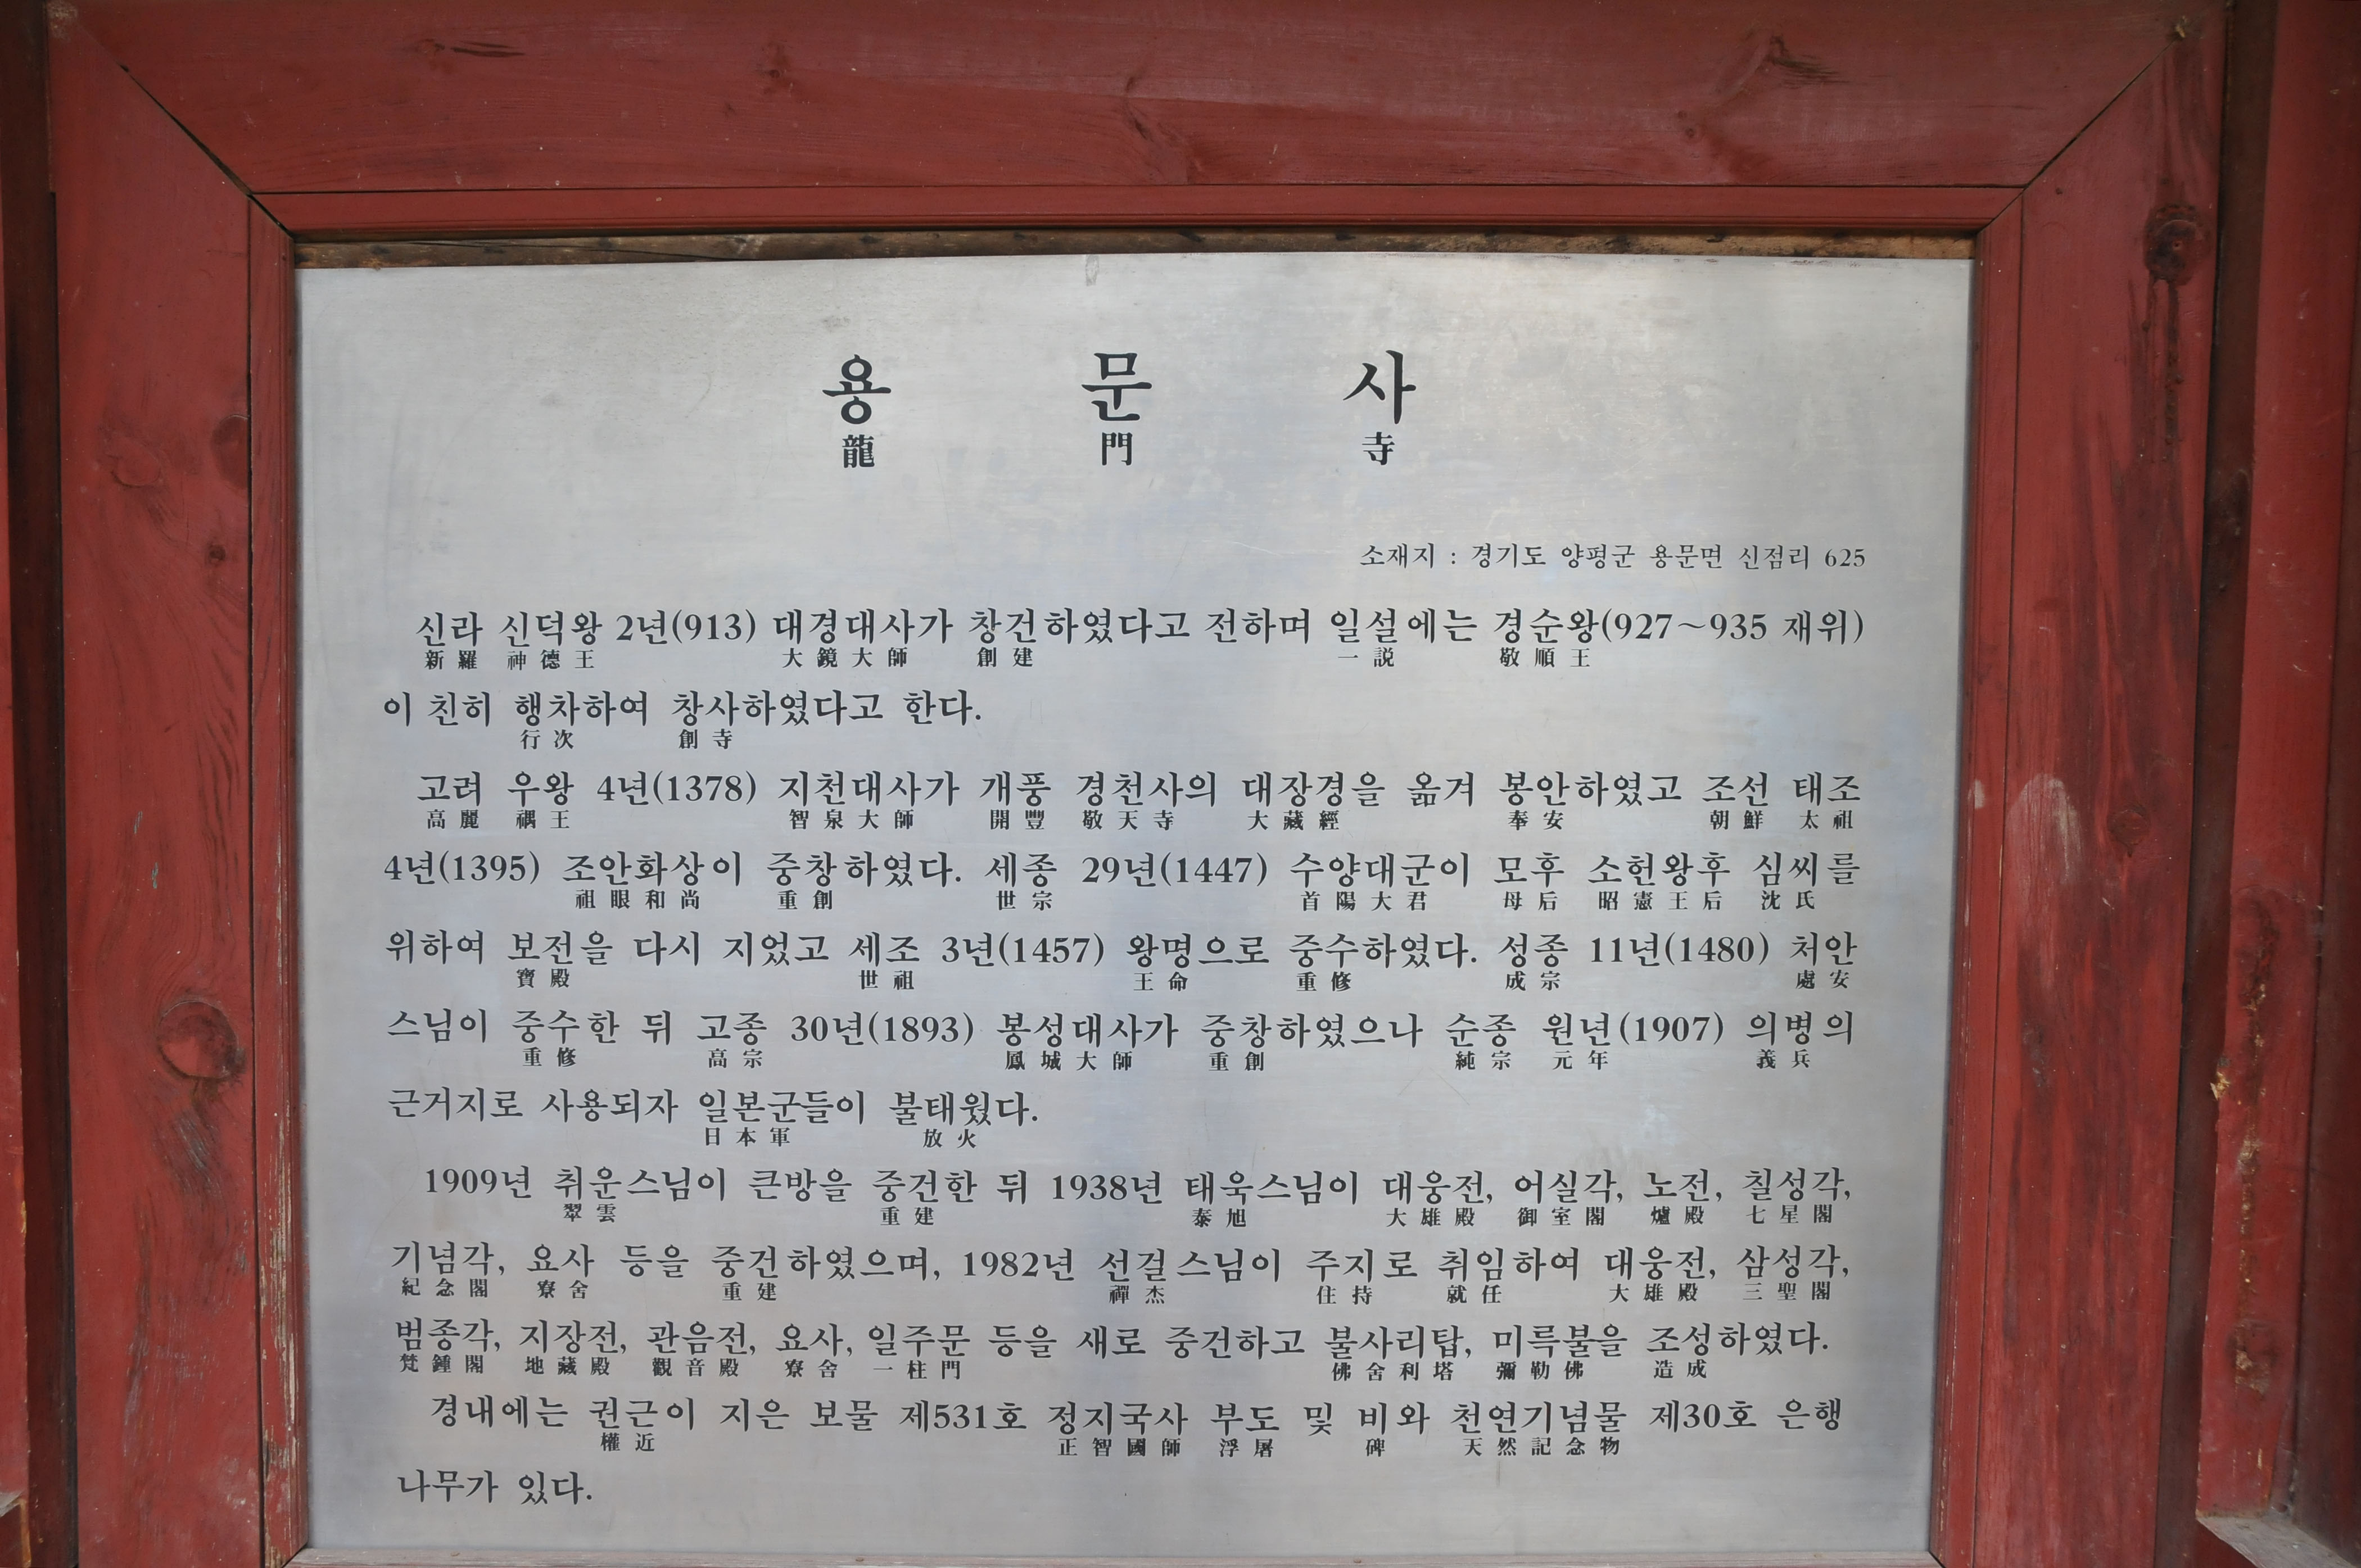 용 문 사
龍 門 寺
소재지 : 경기도 양평군 용문면 신점리 625
신라 신덕왕 2년(913) 대경대사가 창건하였다고 전하며 일설에는 경순왕(927~935 재위)
新羅 神德王 大鏡大師 創建 一說 敬順王
이 친히 행차하여 창사하였다고 한다.
行次 創寺
고려 우왕 4년(1378) 지천대사가 개풍 경천사의 대장경을 옮겨 봉안하였고 조선 태조
高麗 禑王 智泉大師 開豐 敬天寺 大藏經 奉安 朝鮮 太祖
4년(1395) 조안화상이 중창하였다. 세종 29년(1447) 수양대군이 모후 소헌왕후 심씨를
祖眼和尚 重創 世宗 首陽大君 母后 昭憲王后 沈氏
위하여 보전을 다시 지었고 세조 3년(1457) 왕명으로 중수하였다. 성종 11년(1480) 처안
寶殿 世祖 王命 重修 成宗 處安
스님이 중수한 뒤 고종 30년(1893) 봉성대사가 중창하였으나 순종 원년(1907) 의병의
重修 高宗 鳳城大師 重創 純宗 元年 義兵
근거지로 사용되자 일본군들이 불태웠다.
日本軍 放火
1909년 취운스님이 큰방을 중건한 뒤 1938년 태욱스님이 대웅전, 어실각, 노전, 칠성각,
翠雲 重建 泰旭 大雄殿 御室閣 爐殿 七星閣
기념각, 요사 등을 중건하였으며, 1982년 선걸스님이 주지로 취임하여 대웅전, 삼성각,
紀念閣 寮舍 重建 禪杰 住持 就任 大雄殿 三聖閣
범종각, 지장전, 관음전, 요사, 일주문 등을 새로 중건하고 불사리탑, 미륵불을 조성하였다.
梵鍾閣 地藏殿 觀音殿 寮舍 一柱門 佛舍利塔 彌勒佛 造成
경내에는 권근이 지은 보물 제531호 정지국사 부도 및 비와 천연기념물 제30호 은행
權近 正智國師 浮屠 碑 天然記念物
나무가 있다.